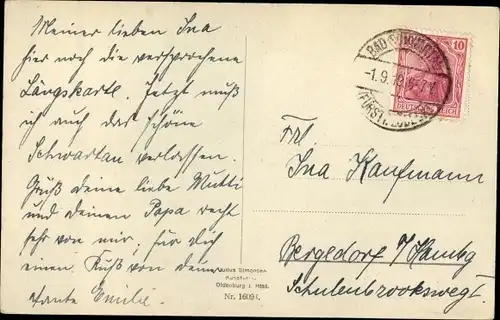 Meiner lieben Ina
hier noch die versprochene
Längskarte. Jetzt muß
ich auch das schöne
Schwartau verlassen.
Grüß deine liebe Mutti
und deinen Papa recht
sehr von mir; für dich
einen Kuß von deiner
Tante Emilie.
Julius Simonsen
Oldenburg i. Holst.
Nr. 1609
BAD SCHWARTAU
-1.9.
10
DEUTSCHES REICH
Frl
Ina Kaufmann
Bergedorf b/Hambg
Schulenbrooksweg I